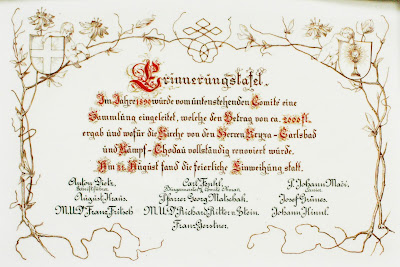 Erinnerungstafel.
Im Jahre 1890 wurde vom untenstehenden Comité eine
Sammlung eingeleitet, welche den Betrag von ca. 2000 fl.
ergab und wofür die Kirche von den Herren Kryxa - Carlsbad
und Kämpf - Chodau vollständig renoviert wurde.
Am 31. August fand die feierliche Einweihung statt.
Anton Dietz,
Carl Pöhl,
P. Johann Macé,
August Kraus,
Pfarrer Georg Matschak,
Josef Grünes,
M.U.D. Franz Fritsch
M.U.D. Richard Ritter v. Stein,
Johann Himml,
Franz Gerstner,